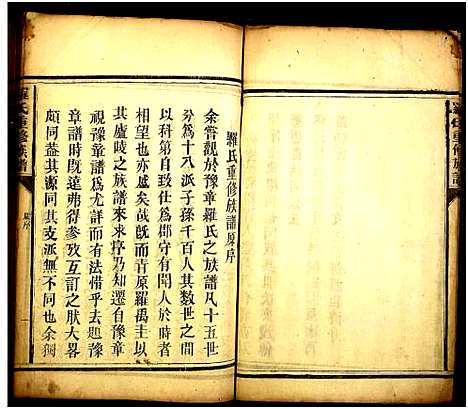 羅氏重修族譜
羅氏重修族譜原序
余嘗觀於豫章羅氏之族譜凡十五世
分為十八派子孫千百人其數世之
以科第自奮仕為郡守有聞人於時者
其望也亦盛矣哉既而青原羅禹圭以
其廬陵之族譜來求序乃知遷自豫章
視豫章譜為尤詳而有法惜乎去豫
章譜時既遠弗得參攷互訂之肰大畧
頗同葢其源同其支派無不同也余獨
羅氏重修族譜
原序